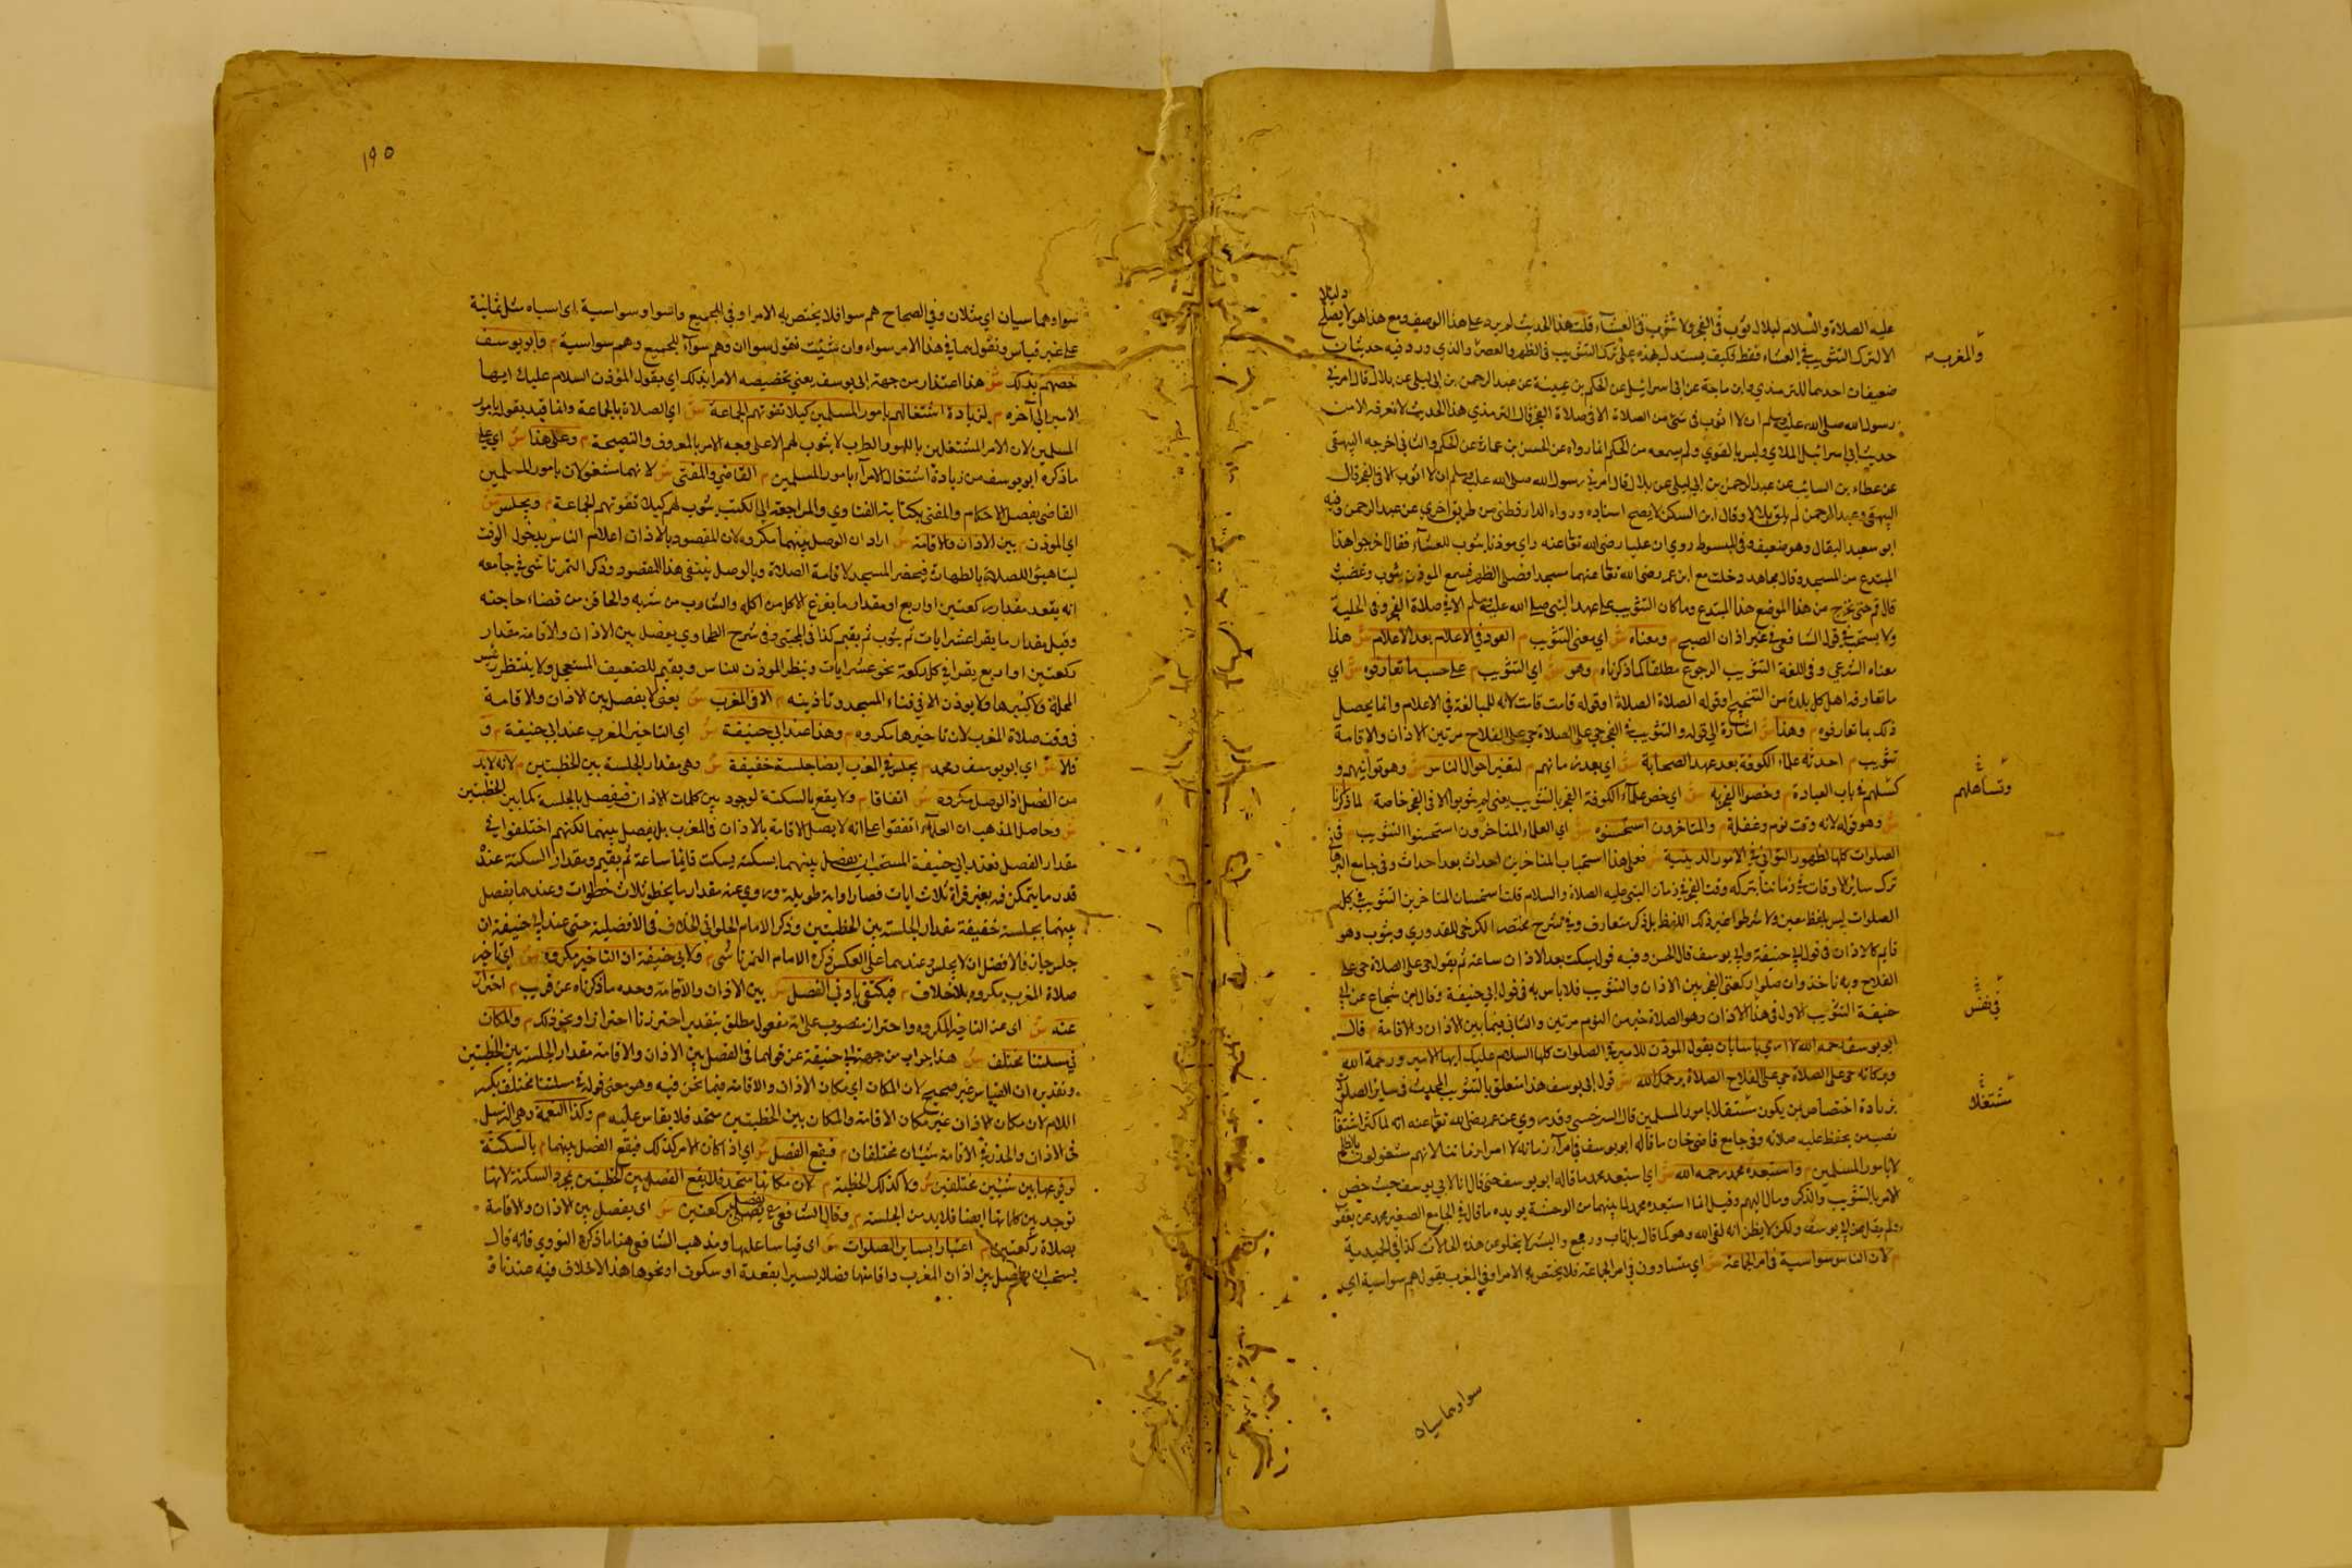 دليلا
عليه الصلاة والسلام لبلال ثوب في الفجر ولا تثوب في العشاء قلت هذا الحديث لم يرد على هذا الوصف ومع هذا هو لا يصلح
الا لترك التثويب في العشاء فقط فكيف يستدل بهذه على ترك التثويب في الظهر والعصر والذي ورد فيه حديثان
والمغرب
ضعيفان احدهما للترمذي وابن ماجة عن ابي اسرائيل عن الحكم بن عيينة عن عبد الرحمن بن ابي ليلى عن بلال قال امرني
رسول الله صلى الله عليه وسلم ان لا اثوب في شئ من الصلاة الا في صلاة الفجر قال الترمذي هذا الحديث لا نعرفه الا من
حديث ابي اسرائيل الملاي وليس بالقوي ولم يسمعه من الحكم انما رواه عن الحسن بن عمارة عن الحكم والثاني اخرجه البيهقي
عن عطاء بن السائب عن عبد الرحمن بن ابي ليلى عن بلال قال امرني رسول الله صلى الله عليه وسلم ان لا اثوب الا في الفجر قال
البيهقي وعبد الرحمن لم يلق بلالا وقال ابن السكن لا يصح اسناده ورواه الدارقطني من طريق اخرى عن عبد الرحمن وفيه
ابو سعيد البقال وهو ضعيف وفي المبسوط روي ان عليا رضي الله تعا عنه راي موذنا يثوب للعشاء فقال اخرجوا هذا
المبتدع من المسجد وقال مجاهد دخلت مع ابن عمر رضي الله تعا عنهما مسجدا فصلى الظهر فسمع الموذن يثوب وغضب
قال قم حتى نخرج من هذا الموضع هذا المبتدع وما كان التثويب على عهد النبي صلى الله عليه وسلم الا في صلاة الفجر وفي الحلية
ولا يستحب في قول الشافعي في غير اذان الصبح م ومعناه ش اي معنى التثويب م العود في الاعلام بعد الاعلام ش هذا
معناه الشرعي وفي اللغة التثويب الرجوع مطلقا كما ذكرناه م وهو ش اي التثويب م على حسب ما تعارفوه ش اي
ما تعارفه اهل كل بلدة من التنحنح او قوله الصلاة الصلاة او قوله قامت قامت لانه للمبالغة في الاعلام وانما يحصل
ذلك بما تعارفوه م وهذا ش اشارة الى قوله والتثويب في الفجر حي على الصلاة حي على الفلاح مرتين الاذان والاقامة
تثويب م احدثه علماء الكوفة بعد عهد الصحابة ش اي بعد زمانهم م لتغير احوال الناس ش وهو توانيهم و
وتساهلهم
كسلهم في باب العبادة م وخصوا الفجر به ش اي خص علماء الكوفة الفجر بالتثويب يعني لم يثوبوا الا في الفجر خاصة م لما ذكرنا
ش وهو قوله لانه وقت نوم وغفلة م والمتاخرون استحسنوه ش اي العلماء المتاخرون استحسنوا التثويب م في
الصلوات كلها لظهور التواني في الامور الدينية ش فعلى هذا استحباب المتاخرين احداث بعد احداث وفي جامع
ترك سائر الاوقات في زماننا بتركه وقت الفجر في زمان النبي عليه الصلاة والسلام قلت استحسان المتاخرين التثويب في كل
الصلوات ليس بلفظ معين ولا شرطوا غير ذلك اللفظ بل ذكر متعارف وفي شرح مختصر الكرخي للقدوري ويثوب وهو
قايم كالاذان في قول ابي حنيفة وابي يوسف قال الحسن وفيه قول يسكت بعد الاذان ساعة ثم يقول حي على الصلاة حي على
الفلاح وبه ناخذ وان صلوا ركعتي الفجر بين الاذان والتثويب فلا باس به في قول ابي حنيفة وقال ابن شجاع عن ابي
في نفس
حنيفة التثويب الاول في هذا الاذان وهو الصلاة خير من النوم مرتين والثاني فيما بين الاذان والاقامة م قال
ابو يوسف رحمه الله لا ارى باسا بان يقول الموذن للامير في الصلوات كلها السلام عليك ايها الامير ورحمة الله
وبركاته حي على الصلاة حي على الفلاح الصلاة يرحمك الله ش قول ابي يوسف هذا متعلق بالتثويب المحدث في ساير الصلوات
مشتغلا
بزيادة اختصاص لمن يكون مشتغلا بامور المسلمين قال السرخسي وقد روي عن عمر رضي الله تعا عنه انه لما كثر اشتغاله
نصب من يحفظ عليه صلاته وفي جامع قاضي خان ما قاله ابو يوسف في امراء زمانه لا امراء زماننا لانهم مشغولون بالظلم
لا بامور المسلمين م واستبعده محمد رحمه الله ش اي استبعد محمد ما قاله ابو يوسف حتى قال انا لابي يوسف حيث خص
الامر بالتثويب والذكر ومال اليهم وقيل انما استبعده محمد لما بينهما من الوحشة يويده ما قال في الجامع الصغير محمد عن يعقوب
ولم يقل عن ابي يوسف ولكن لا يظن انه لقي الله وهو كما قال بل تاب ورجع والبشر لا يخلو عن هذه الحالات كذا في الحميدية
م لان الناس سواسية في امر الجماعة ش اي متساوون في امر الجماعة فلا يختص به الامرا وفي المغرب يقول هم سواسية اي
سوا وهما سيان
١٩٥
سوا وهما سيان اي مثلان وفي الصحاح هم سوا فلا يختص به الامرا وفي الجميع واسوا وسواسية اي اسباه مثل ثمانية
على غير قياس ونقول هما في هذا الامر سواء وان شئت نقول سواان وهم سواء للجميع وهم سواسية م وابو يوسف
خصهم بذلك ش هذا اعتذار من جهة ابي يوسف يعني تخصيصه الامرا بذلك اي بقول المؤذن السلام عليك ايها
الامير الى آخره م لزيادة اشتغالهم بامور المسلمين كيلا تفوتهم الجماعة ش اي الصلاة بالجماعة وانما قيد بقوله بامور
المسلمين لان الامر المشتغلين باللهو والطرب لا يثوب لهم الا على وجه الامر بالمعروف والنصيحة م وعلى هذا ش اي على
ما ذكره ابو يوسف من زيادة اشتغال الامراء بامور المسلمين م القاضي والمفتي ش لانهما مشغولان بامور المسلمين
القاضي بفصل الاحكام والمفتي بكتابة الفتاوي والمراجعة الى الكتب يثوب لهم كيلا تفوتهم الجماعة م ويجلس ش
اي الموذن م بين الاذان والاقامة ش اراد ان الوصل بينهما مكروه لان المقصود بالاذان اعلام الناس بدخول الوقت
ليتاهبوا للصلاة بالطهارة فيحضر المسجد لاقامة الصلاة وبالوصل ينتفي هذا المقصود وذكر التمرتاشي في جامعه
انه يقعد مقدار ركعتين او اربع او مقدار ما يفرغ الاكل من اكله والشارب من شربه والحاقن من قضاء حاجته
وقيل مقدار ما يقرا عشر ايات ثم يثوب ثم يقيم كذا في المجتبى وفي شرح الطحاوي يفصل بين الاذان والاقامة مقدار
ركعتين او اربع يقرا في كل ركعة نحو عشر ايات وينظر الموذن للناس ويقيم للضعيف المستعجل ولا ينتظر رئيس
المحلة وكبيرها ولا يوذن الا في فناء المسجد وتاذينه م الا في المغرب ش يعني لا يفصل بين الاذان والاقامة
في وقت صلاة المغرب لان تاخيرها مكروه م وهذا عند ابي حنيفة ش اي التاخير للمغرب عند ابي حنيفة م و
قالا ش اي ابو يوسف ومحمد م يجلس في المغرب ايضا جلسة خفيفة ش وهي مقدار الجلسة بين الخطبتين م لانه لا بد
من الفصل اذ الوصل مكروه ش اتفاقا م ولا يقع بالسكتة لوجود بين كلمات الاذان فيفصل بالجلسة كما بين الخطبتين
ش وحاصل المذهب ان العلماء اتفقوا على انه لا يصل الاقامة بالاذان في المغرب بل يفصل بينهما لكنهم اختلفوا في
مقدار الفصل فعند ابي حنيفة المستحب ان يفصل بينهما بسكتة يسكت قايما ساعة ثم يقيم ومقدار السكتة عنده
قدر ما يتمكن فيه بغير قراة ثلاث ايات قصار او اية طويلة وروي عنه مقدار ما يخطو ثلاث خطوات وعندهما يفصل
بينهما بجلسة خفيفة مقدار الجلسة بين الخطبتين وذكر الامام الحلواني الخلاف في الافضلية حتى عند ابي حنيفة ان
جلس جاز والافضل ان لا يجلس وعندهما على العكس ذكره الامام التمرتاشي م ولابي حنيفة ان التاخير مكروه ش اي تاخير
صلاة المغرب مكروه بلا خلاف م فيكتفى بادنى الفصل ش بين الاذان والاقامة وحده ما ذكرناه عن قريب م احترازا
عنه ش اي عن التاخير المكروه واحتراز منصوب على انه مفعول مطلق بتقدير احترزنا احترازا او نحو ذلك م والمكان
في مسئلتنا مختلف ش هذا جواب من جهة ابي حنيفة عن قولهما في الفصل بين الاذان والاقامة مقدار الجلسة بين الخطبتين
وتقديره ان القياس غير صحيح لان المكان اي مكان الاذان والاقامة فيما نحن فيه وهو معنى قوله في مسئلتنا مختلف بكسر
اللام لان مكان الاذان غير مكان الاقامة والمكان بين الخطبتين متحد فلا يقاس عليه م وكذا النغمة وهي الترسل
في الاذان والحدر في الاقامة شيئان مختلفان م فيقع الفصل ش اي اذا كان الامر كذلك فيقع الفصل بينهما م بالسكتة
لوقوعها بين شيئين مختلفين ش ولا كذلك الخطبة م لان مكانها متحد فلا يقع الفصل بين الخطبتين بمجرد السكتة لانها
توجد بين كلماتها ايضا فلا بد من الجلسة م وقال الشافعي يفصل بركعتين ش اي يفصل بين الاذان والاقامة
بصلاة ركعتين م اعتبارا بساير الصلوات ش اي قياسا عليها ومذهب الشافعي هنا ما ذكره النووي فانه قال
يستحب ان يفصل بين اذان المغرب واقامتها فصلا يسيرا بقعدة او سكوت او نحوها هذا لا خلاف فيه عندنا و